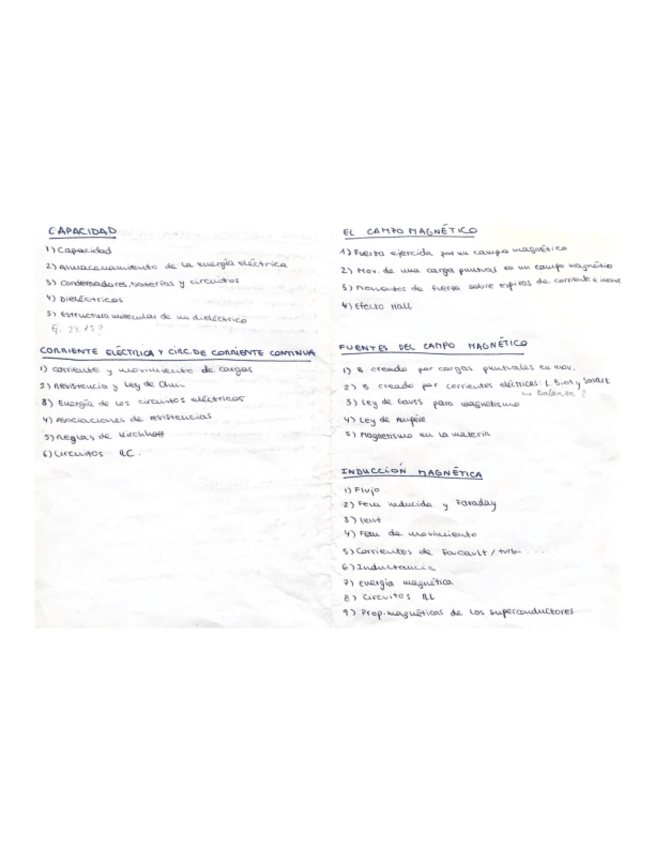 CAPACIDAD
1) Capacidad
2) Almacenamiento de la energía eléctrica
3) Condensadores, baterías y circuitos
4) Dieléctricos
5) Estructura molecular de un dieléctrico
CORRIENTE ELÉCTRICA Y CIRC. DE CORRIENTE CONTINUA
1) Corriente y movimiento de cargas
2) Resistencia y Ley de Ohm
3) Energía de los circuitos eléctricos
4) Asociaciones de resistencias
5) Reglas de Kirchhoff
6) Circuitos RC.
EL CAMPO MAGNÉTICO
1) Fuerza ejercida por un campo magnético
2) Mov. de una carga puntual en un campo magnético
3) Momentos de fuerza sobre espiras de corriente e
4) Efecto Hall
FUENTES DEL CAMPO MAGNÉTICO
1) B creado por cargas puntuales en mov.
2) B creado por corrientes eléctricas: L. Biot y Savart
3) Ley de Gauss para magnetismo
4) Ley de Ampère
5) Magnetismo en la materia
INDUCCIÓN MAGNÉTICA
1) Flujo
2) Fem inducida y Faraday
3) Lenz
4) Fem de movimiento
5) Corrientes de Foucault / turbi...
6) Inductancia
7) Energía magnética
8) Circuitos RL
9) Prop. magnéticas de los superconductores